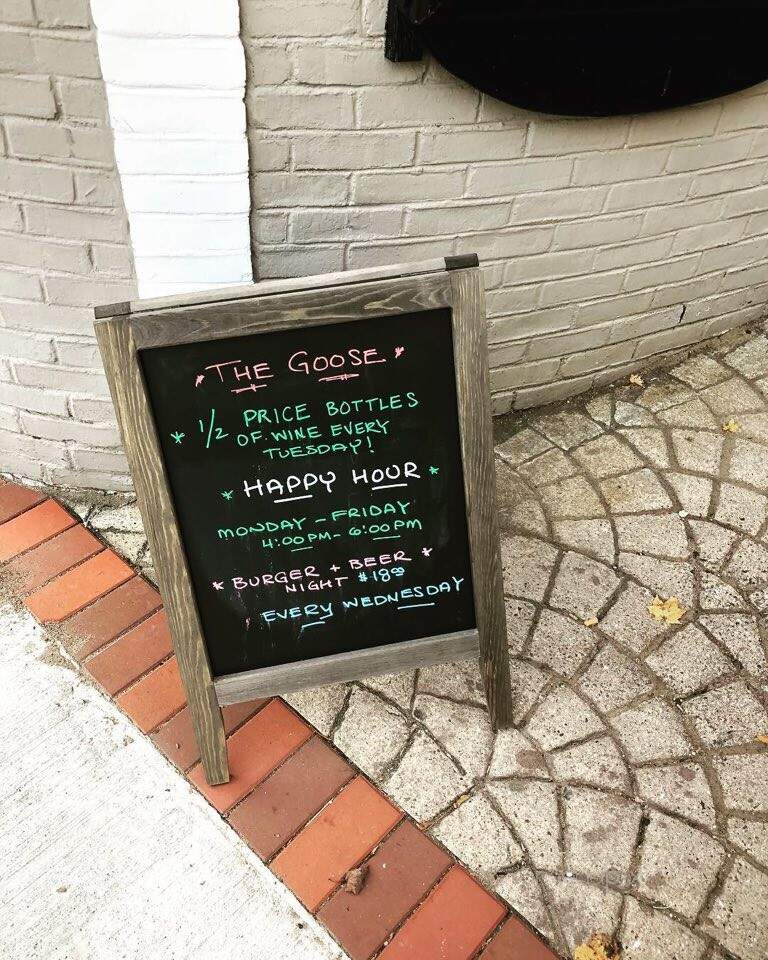 THE GOOSE
1/2 PRICE BOTTLES
OF WINE EVERY
TUESDAY!
HAPPY HOUR
MONDAY - FRIDAY
4:00PM - 6:00PM
* BURGER + BEER *
NIGHT $18.00
EVERY WEDNESDAY